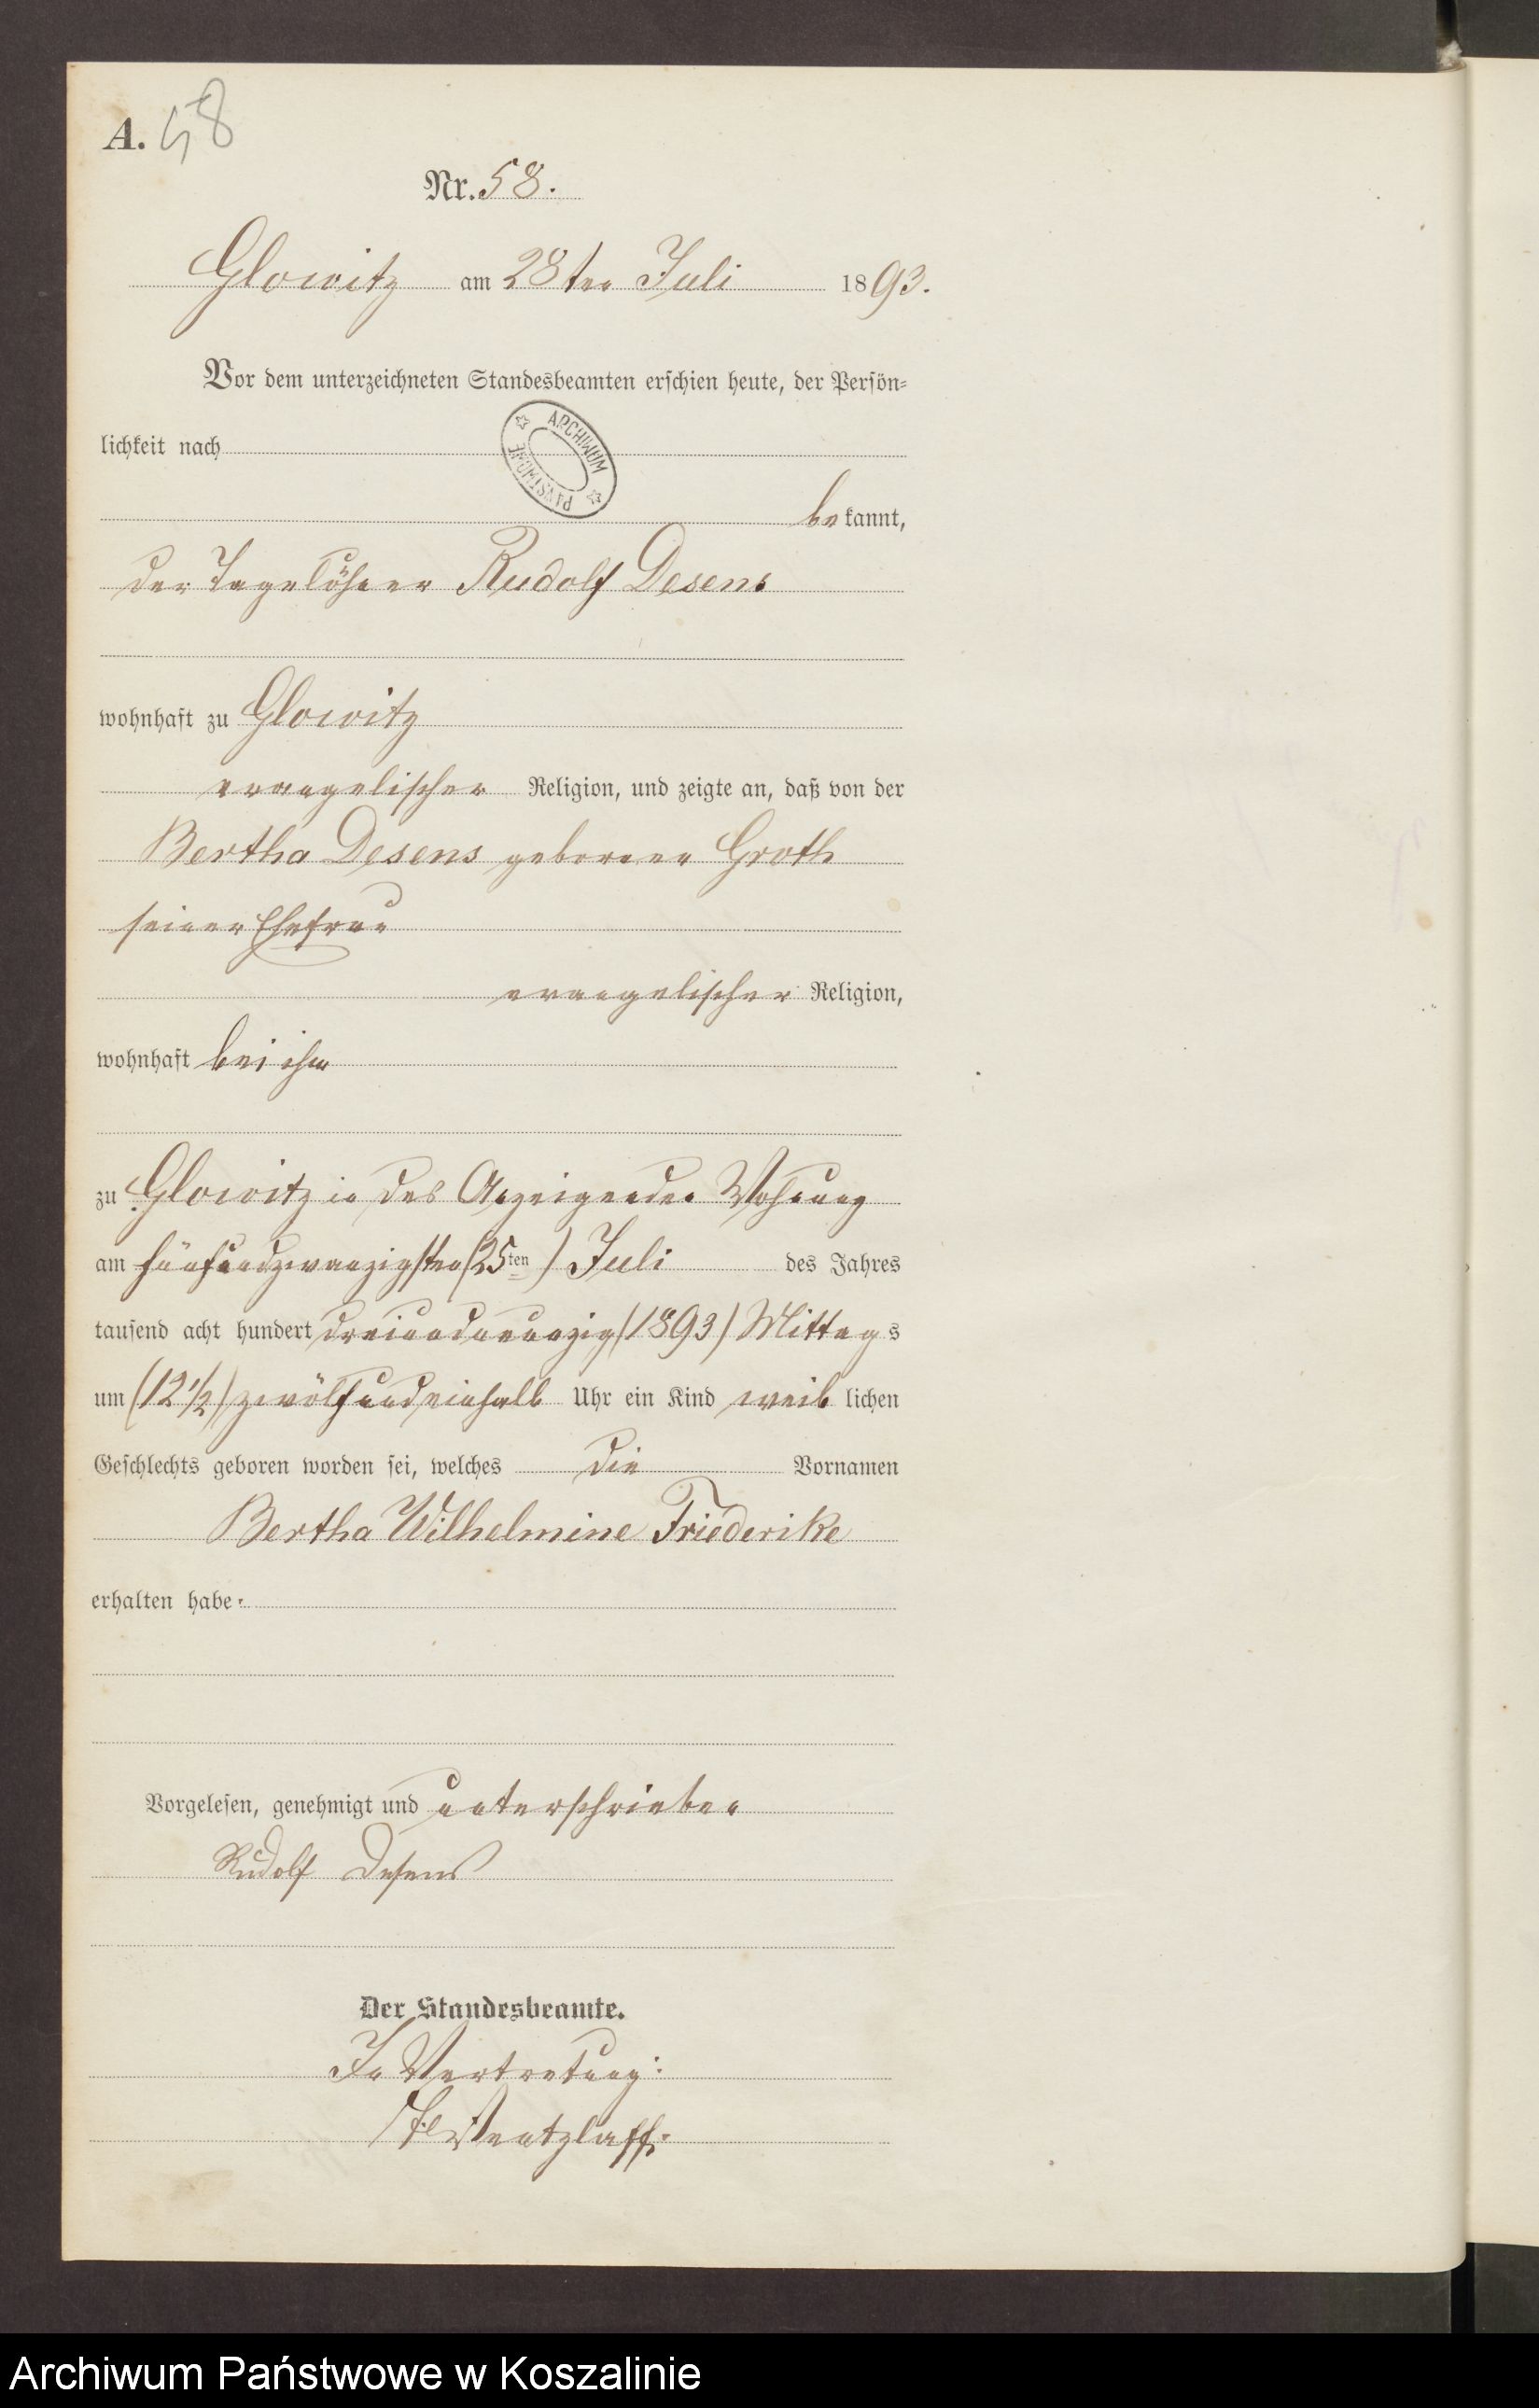 A. 58
Nr. 58.
Glowitz am 28ten Juli 1893.
Vor dem unterzeichneten Standesbeamten erschien heute, der Persön-
lichkeit nach
ARCHIWUM PAŃSTWOWE
bekannt,
der Tagelöhner Rudolf Desens
wohnhaft zu Glowitz
evangelischer Religion, und zeigte an, daß von der
Bertha Desens geborenen Groth
seiner Ehefrau
evangelischer Religion,
wohnhaft bei ihm
zu Glowitz in des Anzeigenden Wohnung
am fünfundzwanzigsten (25ten) Juli des Jahres
tausend acht hundert dreiundneunzig (1893) Mittags
um (12½) zwölfundeinhalb Uhr ein Kind weiblichen
Geschlechts geboren worden sei, welches die Vornamen
Bertha Wilhelmine Friederike
erhalten habe.
Vorgelesen, genehmigt und unterschrieben
Rudolf Desens
Der Standesbeamte.
In Vertretung:
Wentzlaff.
Archiwum Państwowe w Koszalinie